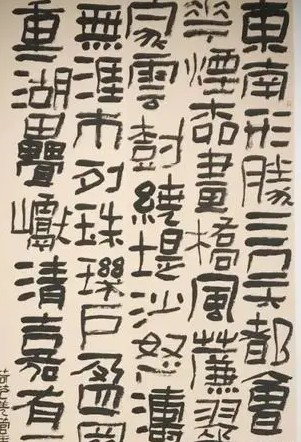 東南形勝三吳都會
華煙柳畫橋風簾翠
家雲樹繞堤沙怒濤
無涯市列珠璣戶盈羅
重湖疊巘清嘉有